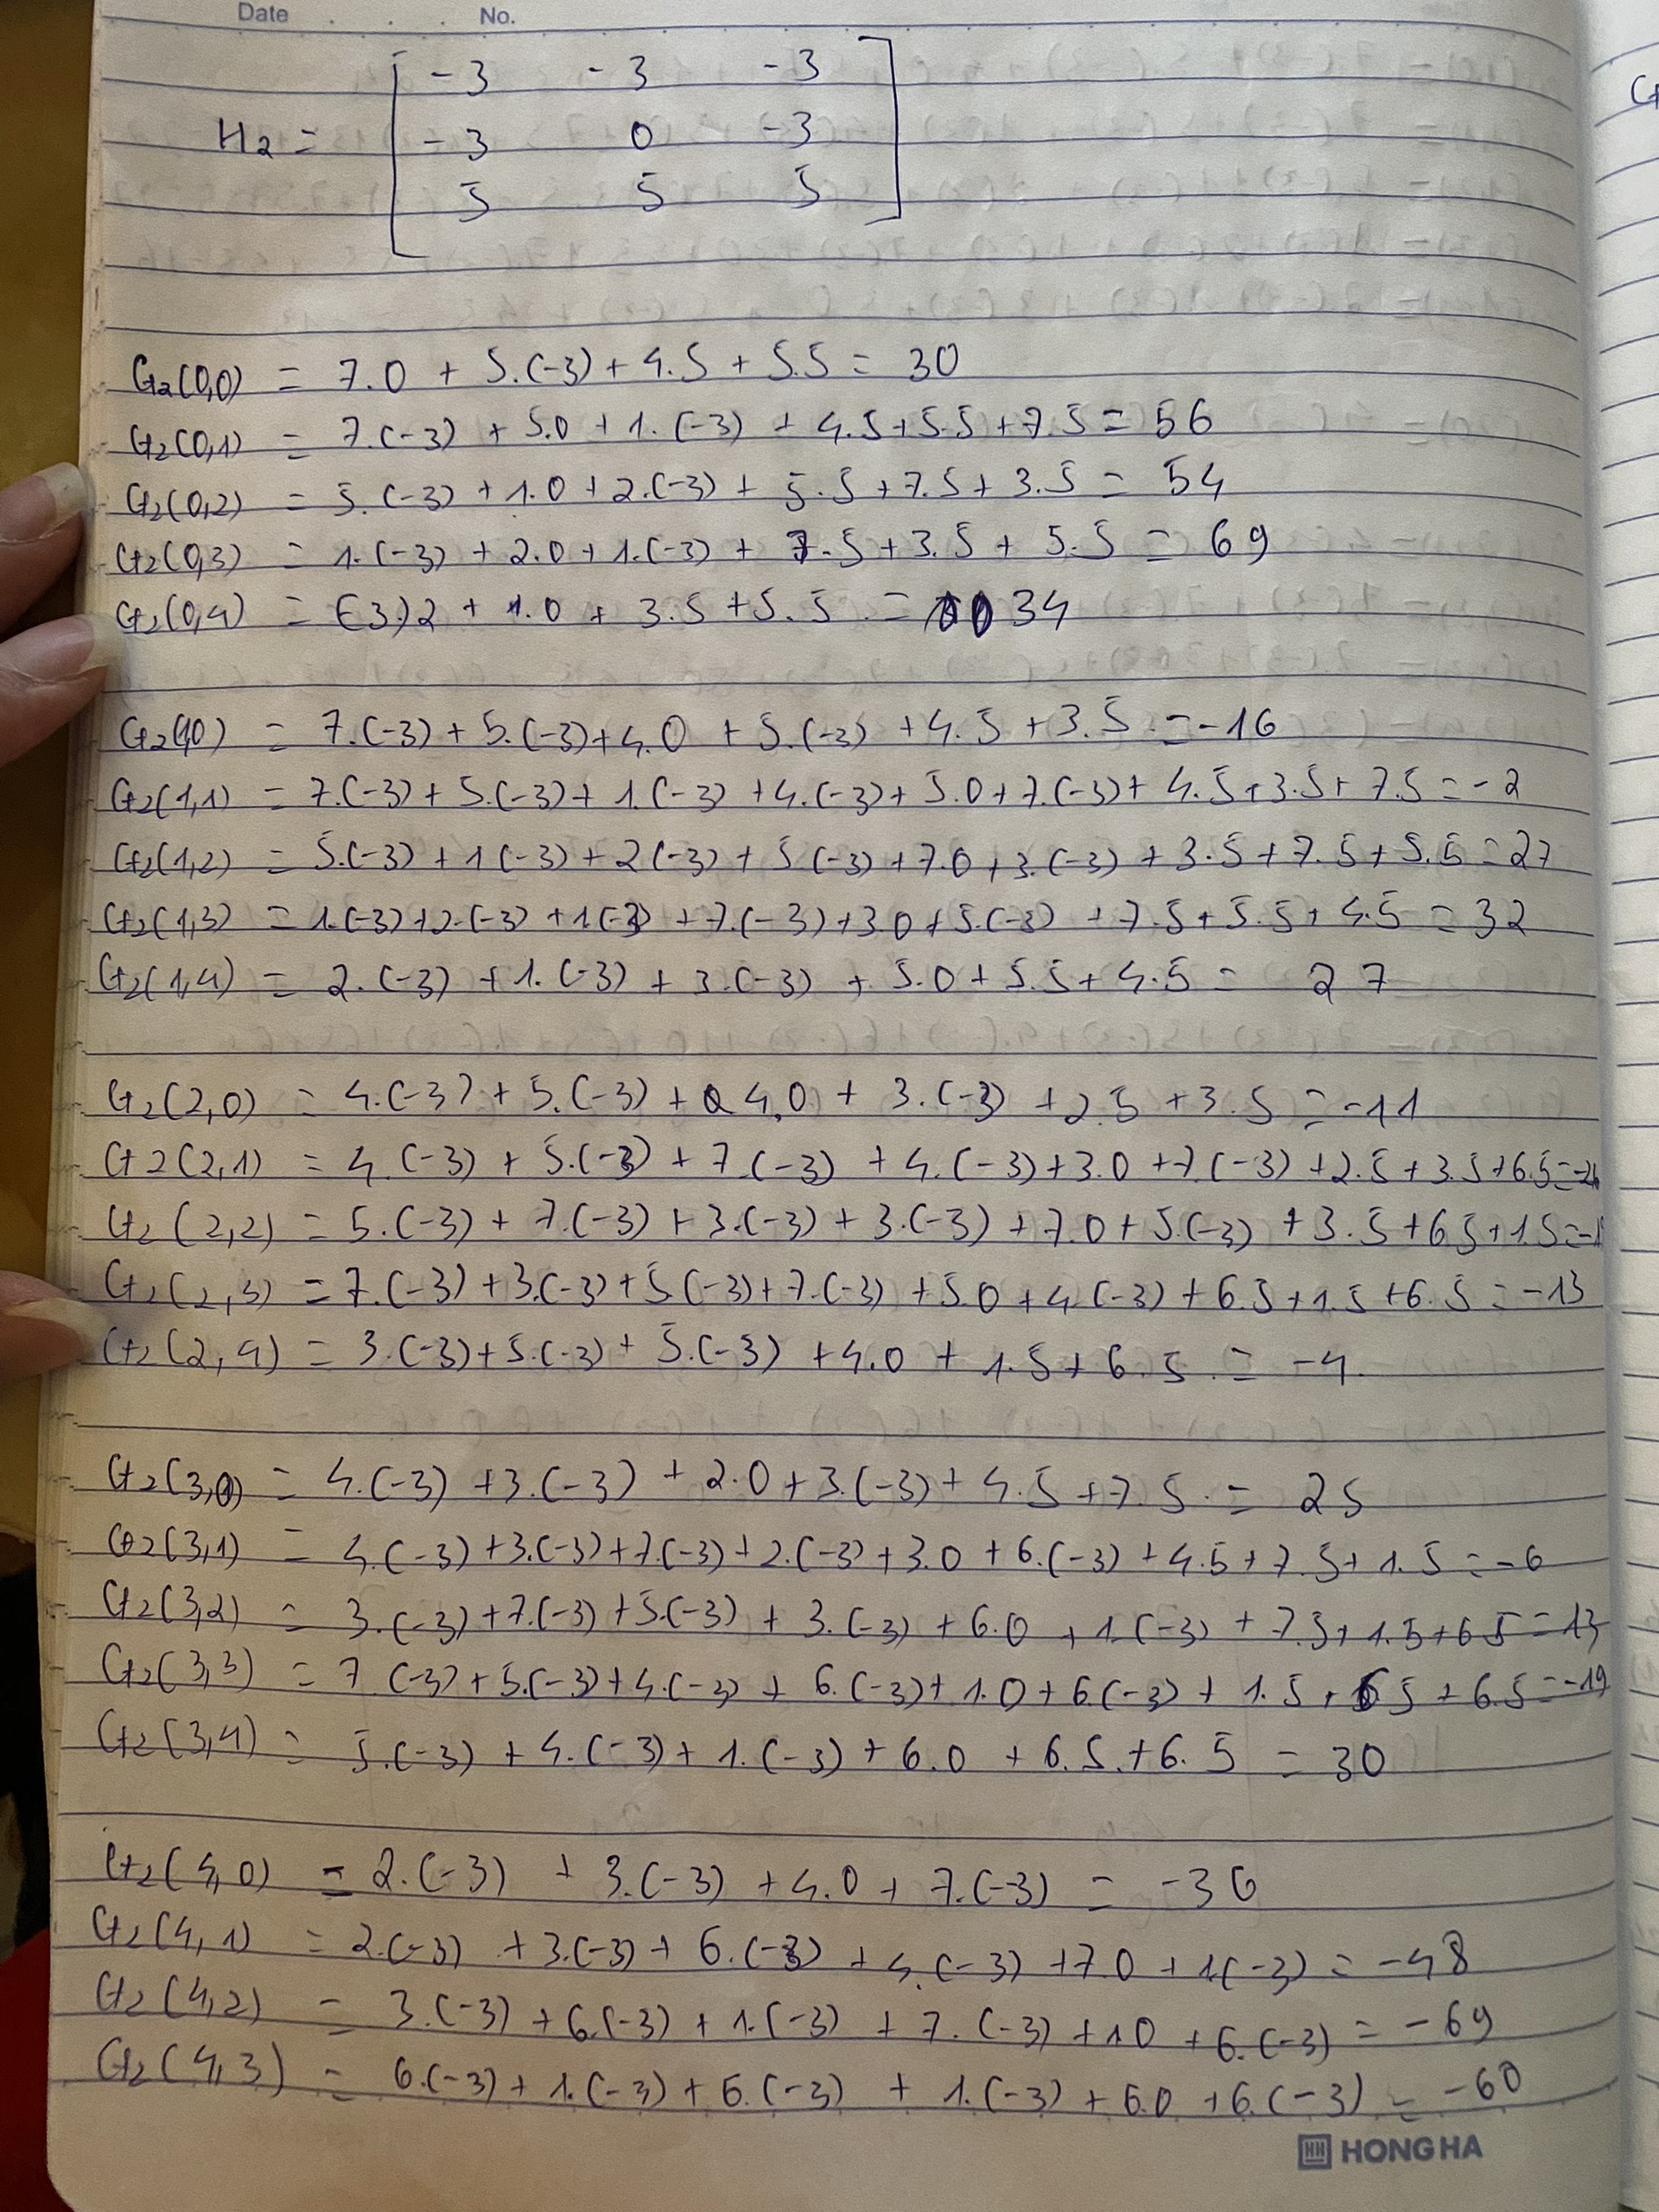 Date . . No.
H2 = [ -3 -3 -3
-3 0 -3
5 5 5 ]
G2(0,0) = 7.0 + 5.(-3) + 4.5 + 5.5 = 30
G2(0,1) = 7.(-3) + 5.0 + 1.(-3) + 4.5 + 5.5 + 7.5 = 56
G2(0,2) = 5.(-3) + 1.0 + 2.(-3) + 5.5 + 7.5 + 3.5 = 54
G2(0,3) = 1.(-3) + 2.0 + 1.(-3) + 7.5 + 3.5 + 5.5 = 69
G2(0,4) = (-3).2 + 1.0 + 3.5 + 5.5 = 34
G2(1,0) = 7.(-3) + 5.(-3) + 4.0 + 5.(-3) + 4.5 + 3.5 = -16
G2(1,1) = 7.(-3) + 5.(-3) + 1.(-3) + 4.(-3) + 5.0 + 7.(-3) + 4.5 + 3.5 + 7.5 = -2
G2(1,2) = 5.(-3) + 1(-3) + 2(-3) + 5(-3) + 7.0 + 3.(-3) + 3.5 + 7.5 + 5.5 = 27
G2(1,3) = 1.(-3) + 2.(-3) + 1(-3) + 7.(-3) + 3.0 + 5.(-3) + 7.5 + 5.5 + 4.5 = 32
G2(1,4) = 2.(-3) + 1.(-3) + 3.(-3) + 5.0 + 5.5 + 4.5 = 27
G2(2,0) = 4.(-3) + 5.(-3) + 4.0 + 3.(-3) + 2.5 + 3.5 = -11
G2(2,1) = 4.(-3) + 5.(-3) + 7.(-3) + 4.(-3) + 3.0 + 7.(-3) + 2.5 + 3.5 + 6.5 =
G2(2,2) = 5.(-3) + 7.(-3) + 3.(-3) + 3.(-3) + 7.0 + 5.(-3) + 3.5 + 6.5 + 1.5 =
G2(2,3) = 7.(-3) + 3.(-3) + 5(-3) + 7.(-3) + 5.0 + 4.(-3) + 6.5 + 1.5 + 6.5 = -13
G2(2,4) = 3.(-3) + 5.(-3) + 5.(-3) + 4.0 + 1.5 + 6.5 = -4
G2(3,0) = 4.(-3) + 3.(-3) + 2.0 + 3.(-3) + 4.5 + 7.5 = 25
G2(3,1) = 4.(-3) + 3.(-3) + 7.(-3) + 2.(-3) + 3.0 + 6.(-3) + 4.5 + 7.5 + 1.5 = -6
G2(3,2) = 3.(-3) + 7.(-3) + 5.(-3) + 3.(-3) + 6.0 + 1.(-3) + 7.5 + 1.5 + 6.5 = 13
G2(3,3) = 7.(-3) + 5.(-3) + 4.(-3) + 6.(-3) + 1.0 + 6.(-3) + 1.5 + 6.5 + 6.5 = -19
G2(3,4) = 5.(-3) + 4.(-3) + 1.(-3) + 6.0 + 6.5 + 6.5 = 30
G2(4,0) = 2.(-3) + 3.(-3) + 4.0 + 7.(-3) = -36
G2(4,1) = 2.(-3) + 3.(-3) + 6.(-3) + 4.(-3) + 7.0 + 1.(-3) = -48
G2(4,2) = 3.(-3) + 6.(-3) + 1.(-3) + 7.(-3) + 1.0 + 6.(-3) = -69
G2(4,3) = 6.(-3) + 1.(-3) + 6.(-3) + 1.(-3) + 6.0 + 6.(-3) = -60
HONG HA